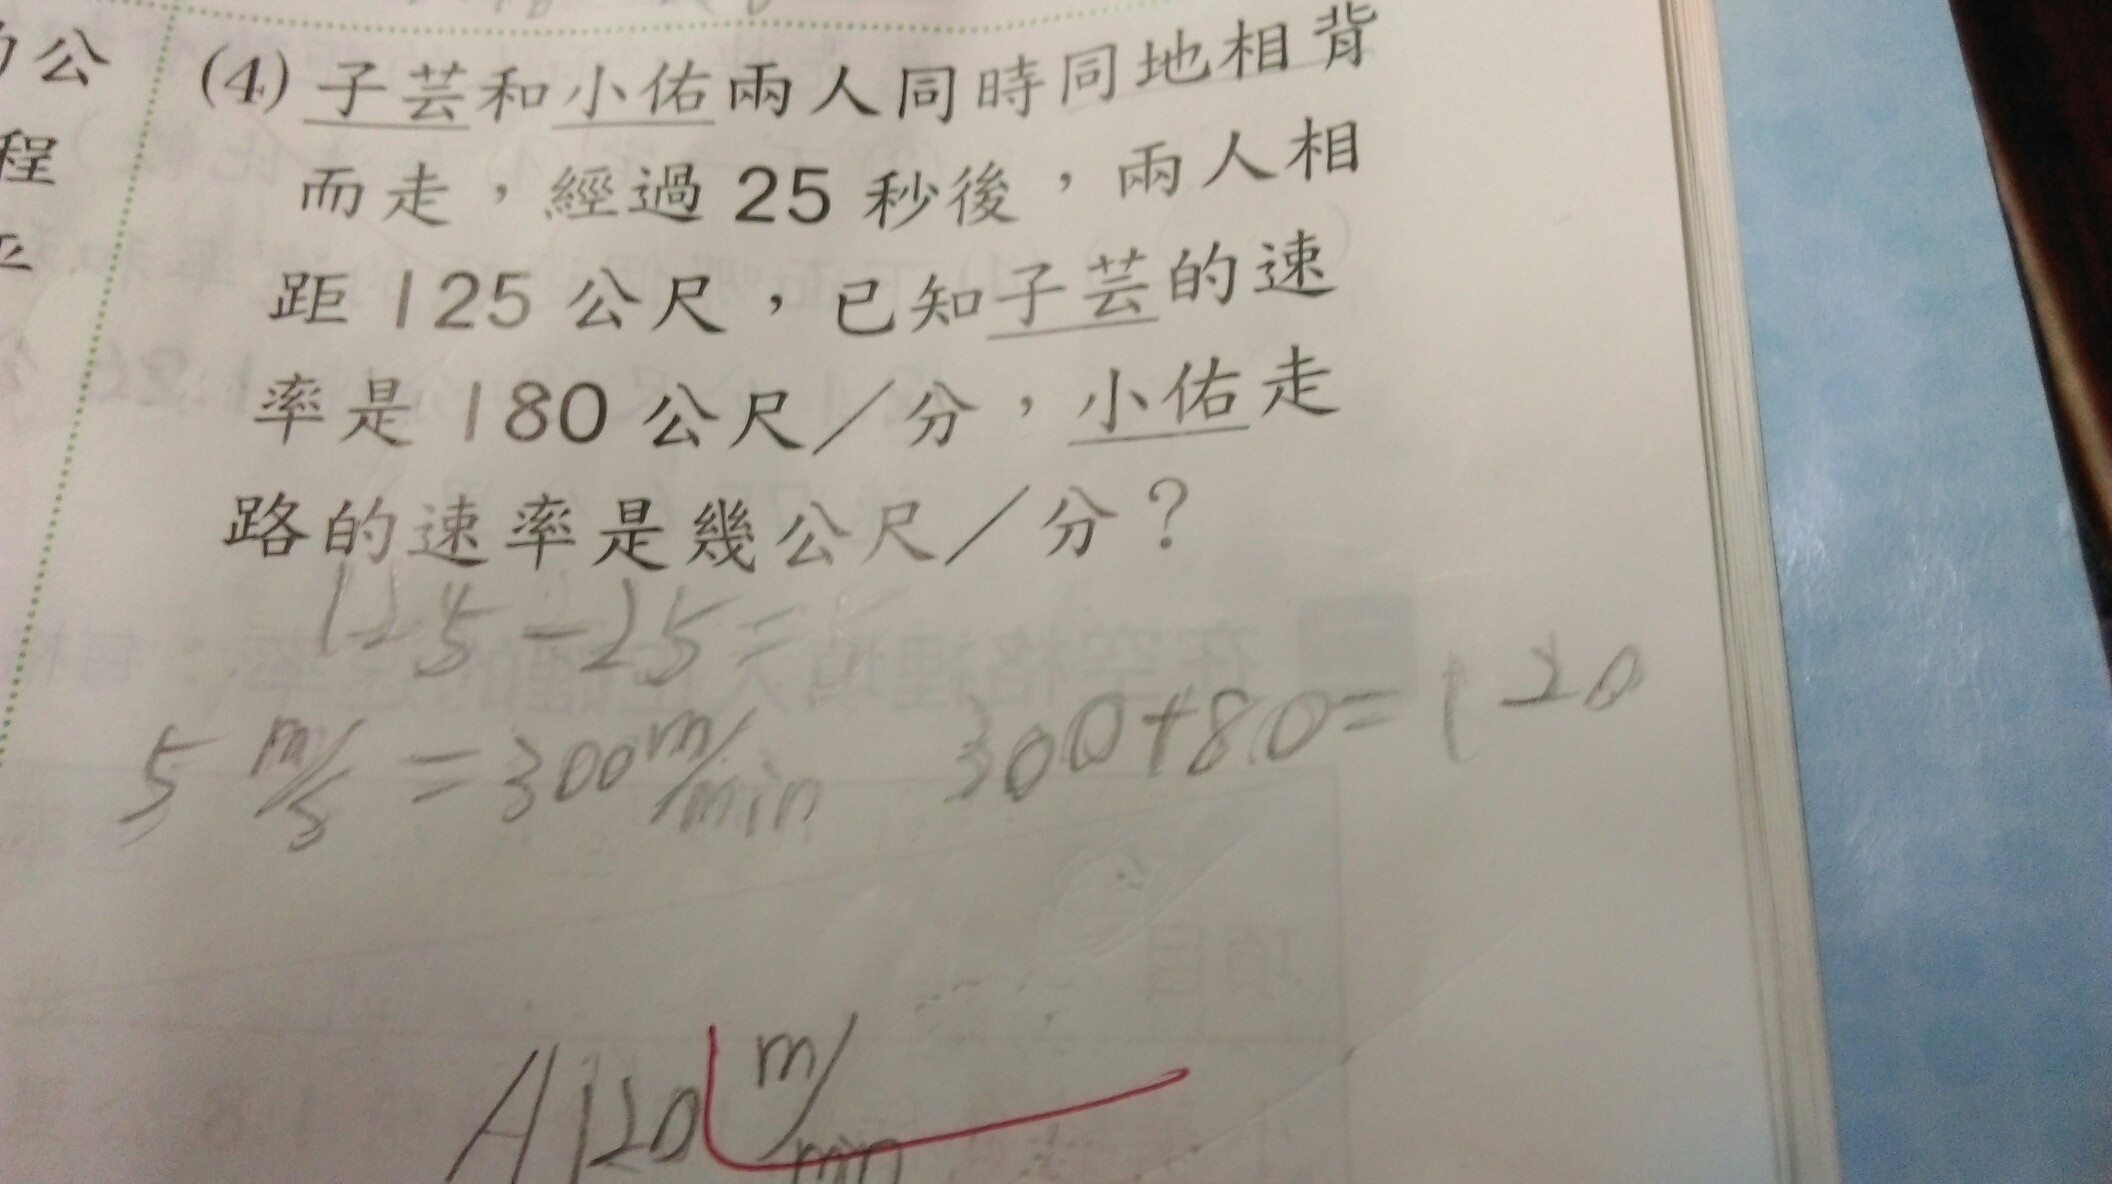 公
程
(4) 子芸和小佑兩人同時同地相背
而走，經過 25 秒後，兩人相
距 125 公尺，已知子芸的速
率是 180 公尺／分，小佑走
路的速率是幾公尺／分？
125-25=
5 m/s = 300 m/min
300+80=120
A 120 m/min